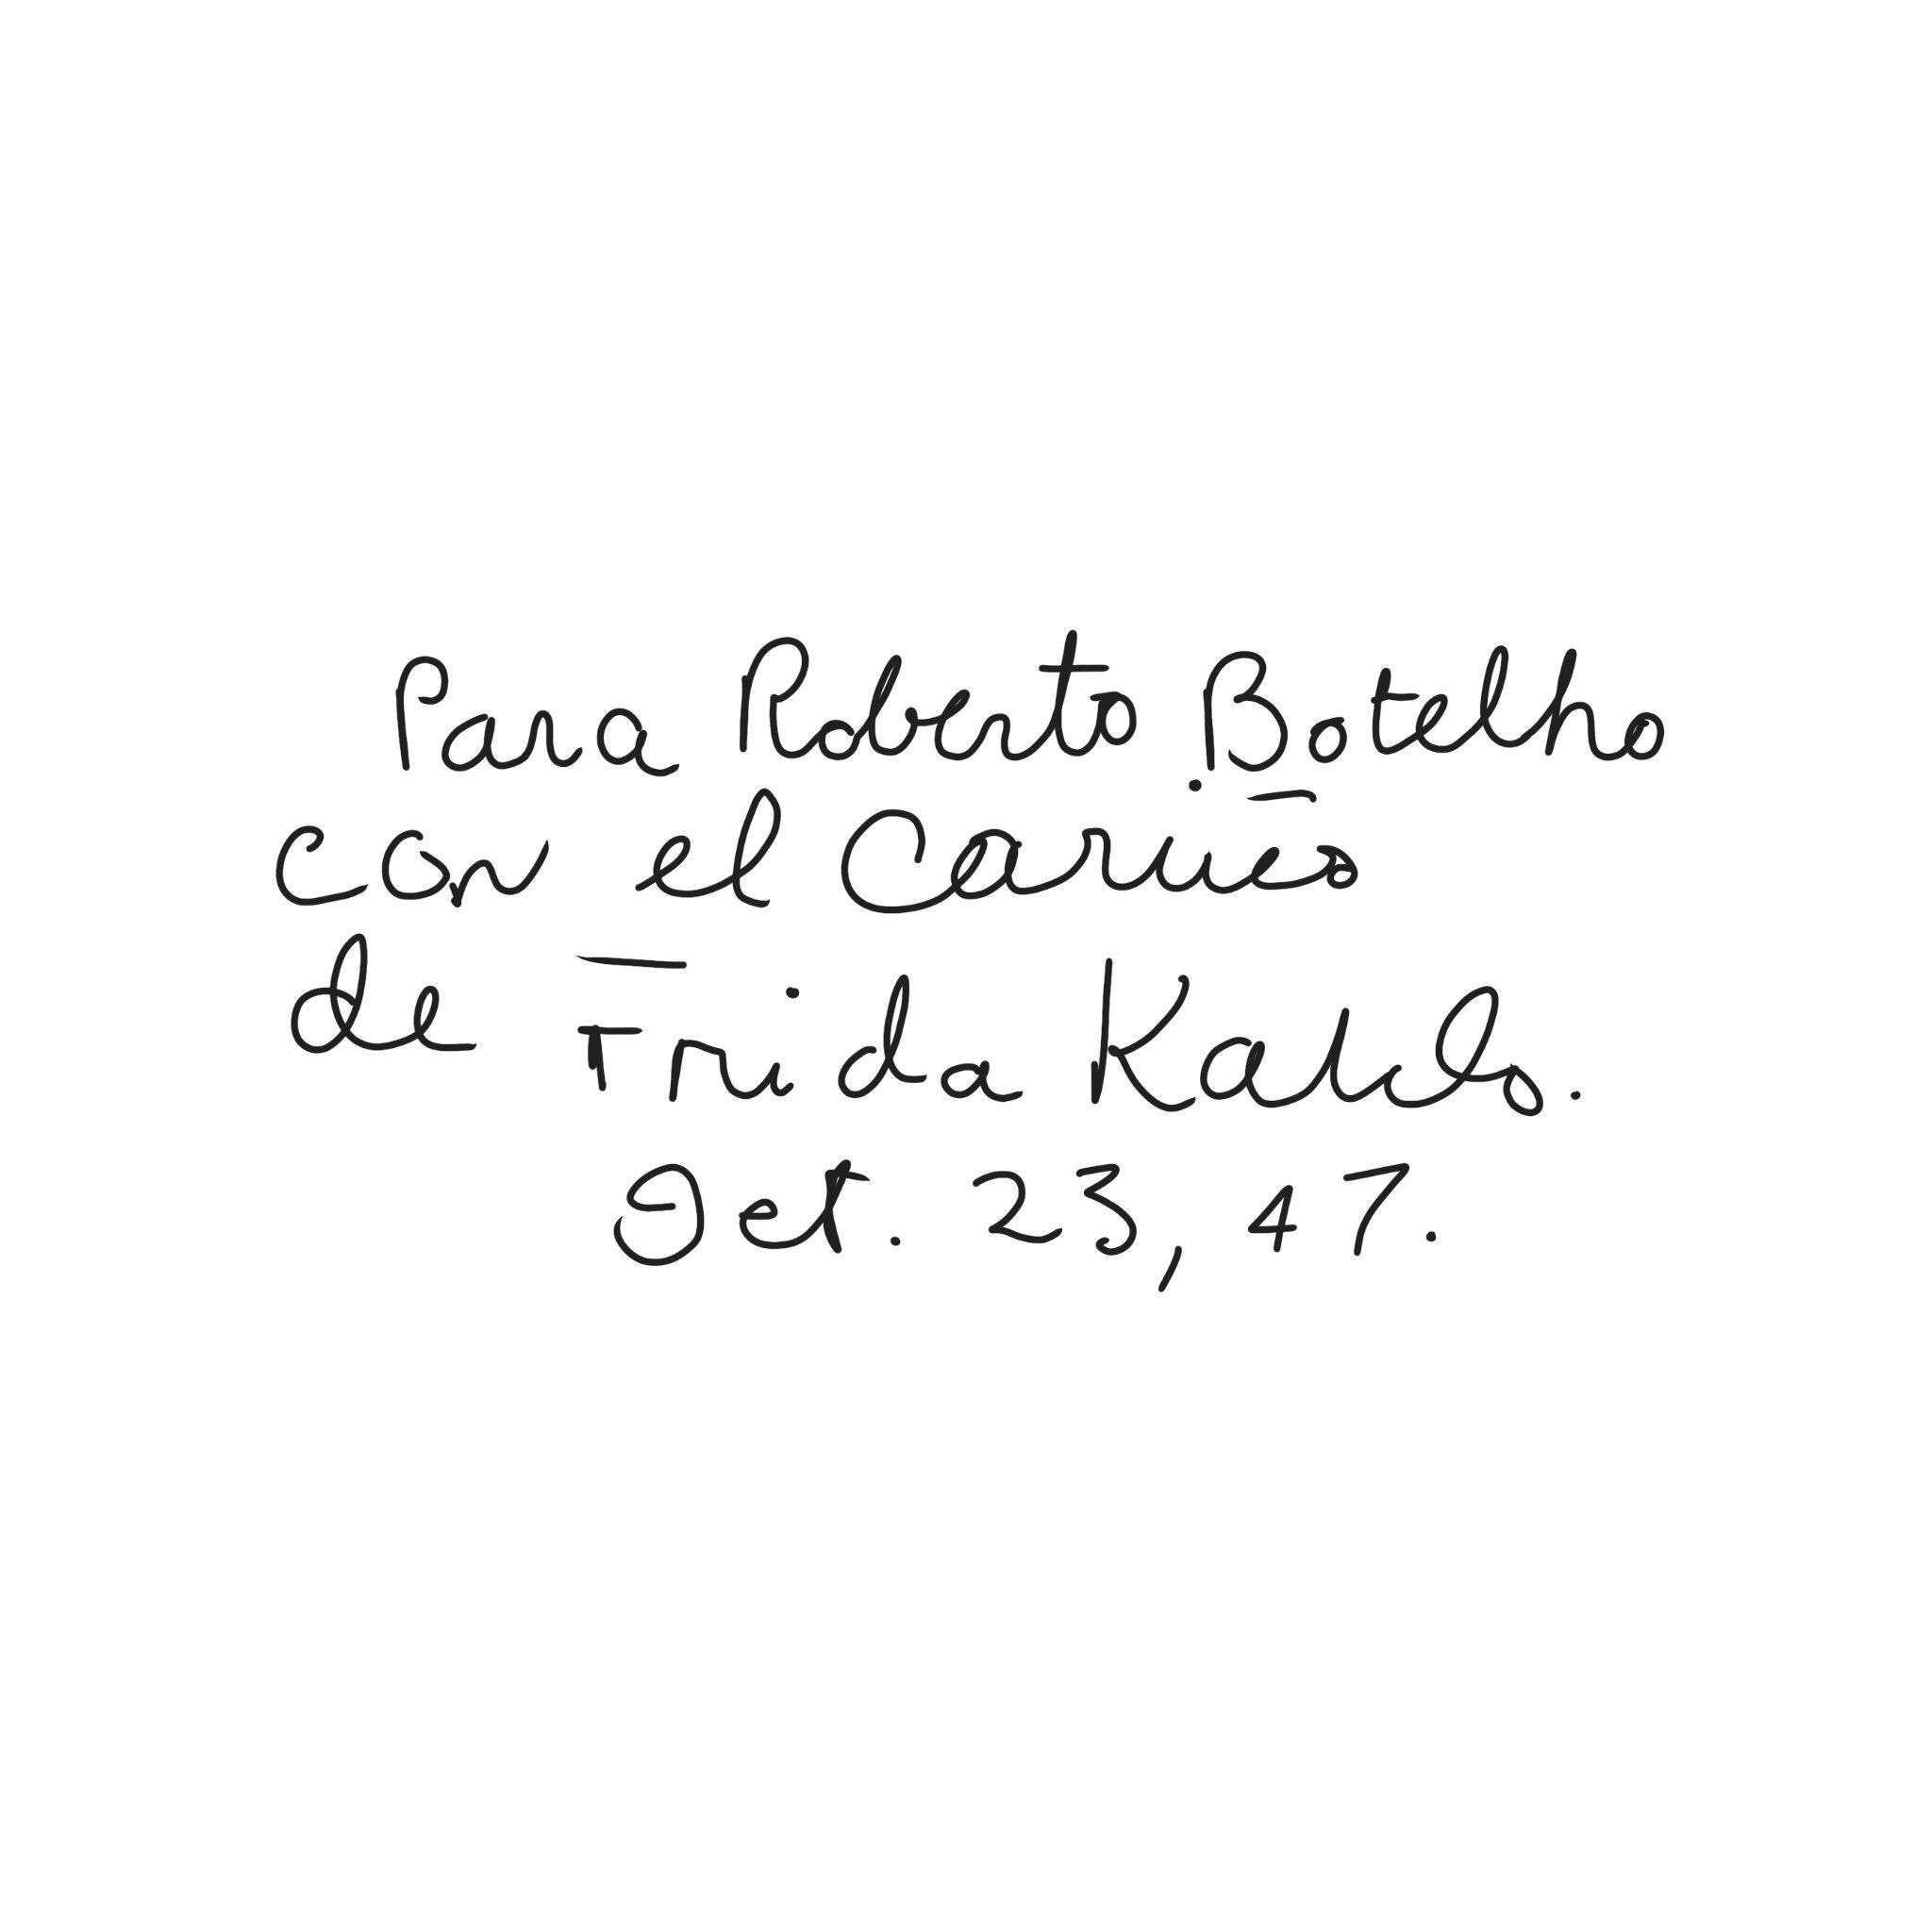 Para Roberto Botelho
con el Cariño
de Frida Kahlo.
Set. 23, 47.